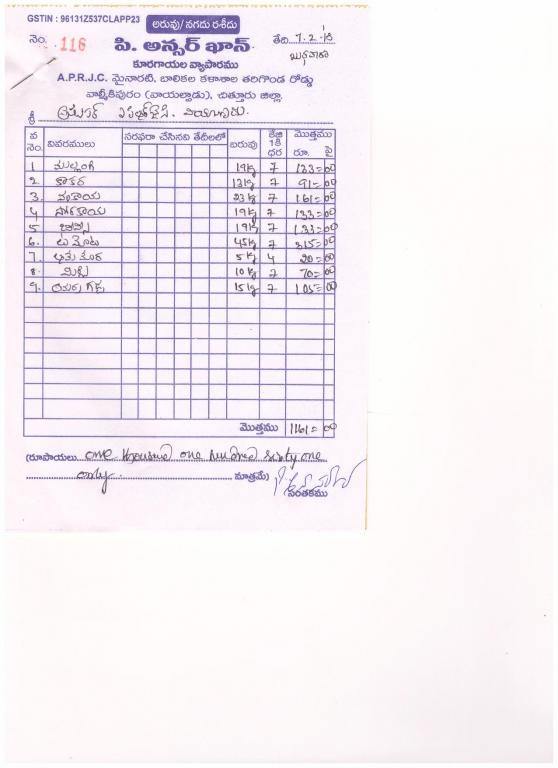 GSTIN : 96131Z537CLAPP23
అరువు/నగదు రశీదు
నెం. 116
తేది 7.2.18
బుధవారం
పి. అన్సర్ ఖాన్.
కూరగాయల వ్యాపారము
A.P.R.J.C. మైనారటి, బాలికల కళాశాల తరిగొండ రోడ్డు
వాల్మీకిపురం (వాయల్పాడు), చిత్తూరు జిల్లా.
శ్రీ
వ నెం. వివరములు సరఫరా చేసినవి తేదీలలో బరువు కేజి 1కి ధర మొత్తము రూ. పై
1. ముల్లంగి 19kg 7 133=00
2. కాకర 13kg 7 91=00
3. వంకాయ 23kg 7 161=00
4 సోరకాయ 19kg 7 133=00
5 19kg 7 133=00
6. టమోటా 45kg 7 315=00
7. 5kg 4 20=00
8. మిర్చి 10kg 7 70=00
9. 15kg 7 105=00
మొత్తము 1161=00
(రూపాయలు one thousand one hundred sixty one
only. మాత్రమే)
సంతకము